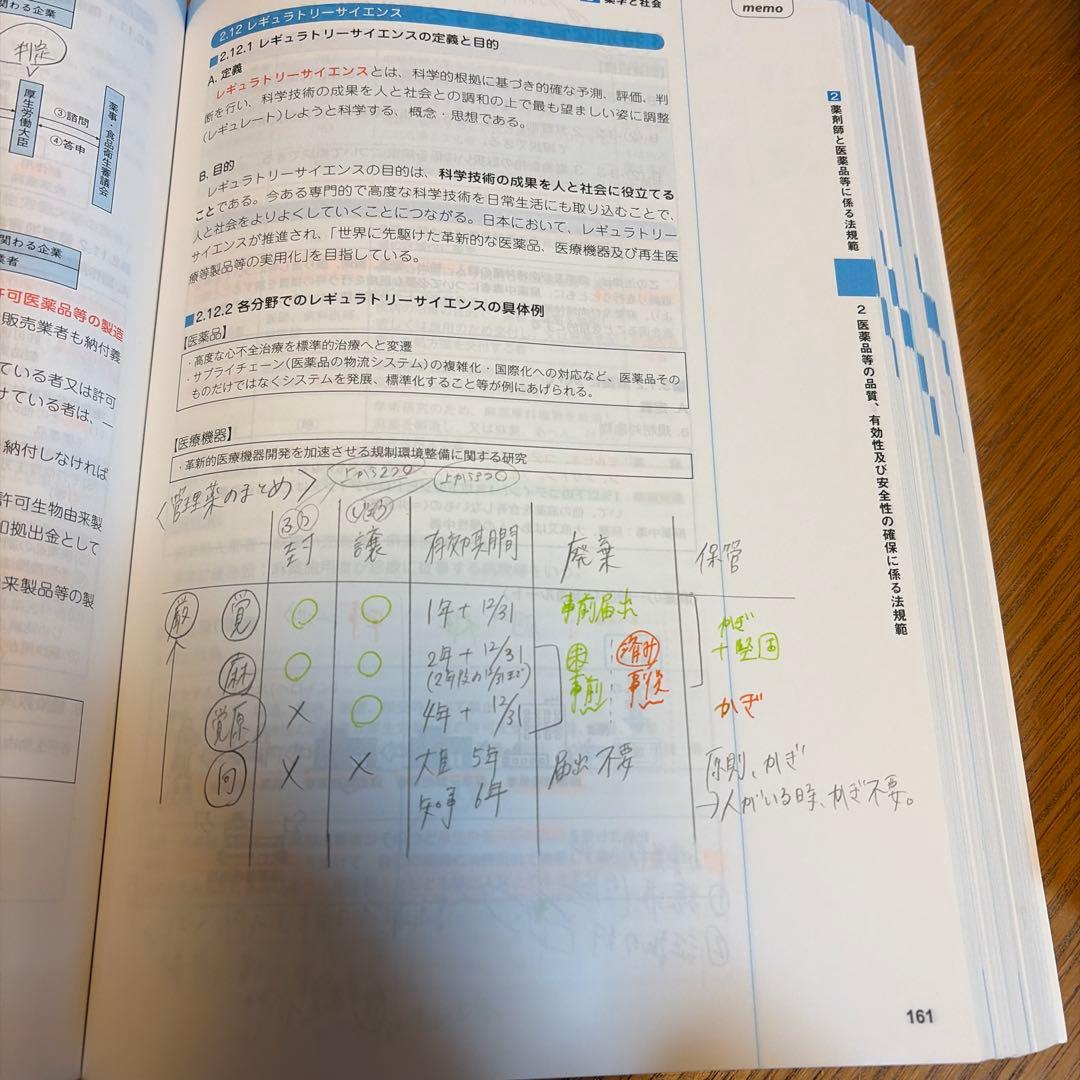 関わる企業
判定
厚生労働大臣
③諮問
④答申
薬事・食品衛生審議会
関わる企業
業者
許可医薬品等の製造
販売業者も納付義
ている者又は許可
けている者は、一
納付しなければ
許可生物由来製
拠出金として
来製品等の製
薬学と社会
memo
2.12 レギュラトリーサイエンス
■2.12.1 レギュラトリーサイエンスの定義と目的
A. 定義
レギュラトリーサイエンスとは、科学的根拠に基づき的確な予測、評価、判
断を行い、科学技術の成果を人と社会との調和の上で最も望ましい姿に調整
(レギュレート)しようと科学する、概念・思想である。
B. 目的
レギュラトリーサイエンスの目的は、科学技術の成果を人と社会に役立てる
ことである。今ある専門的で高度な科学技術を日常生活にも取り込むことで、
人と社会をよりよくしていくことにつながる。日本において、レギュラトリー
サイエンスが推進され、「世界に先駆けた革新的な医薬品、医療機器及び再生医
療等製品等の実用化」を目指している。
■2.12.2 各分野でのレギュラトリーサイエンスの具体例
【医薬品】
・高度な心不全治療を標準的治療へと変遷
・サプライチェーン(医薬品の物流システム)の複雑化・国際化への対応など、医薬品その
ものだけではなくシステムを発展、標準化すること等が例にあげられる。
【医療機器】
・革新的医療機器開発を加速させる規制環境整備に関する研究
<管理薬のまとめ>
上から2つ○
上から3つ○
封 譲 有効期間 廃棄 保管
厳 覚 ○ ○ 1年+12/31 事前届出
麻 ○ ○ 2年+12/31
(2年後の12/31まで)
未 事前
済み 事後
かぎ
+堅固
覚原 × ○ 4年+12/31 かぎ
向 × × 大臣 5年 届出不要 原則、かぎ
知事 6年 →人がいる時、かぎ不要。
2 薬剤師と医薬品等に係る法規範
2 医薬品等の品質、有効性及び安全性の確保に係る法規範
161